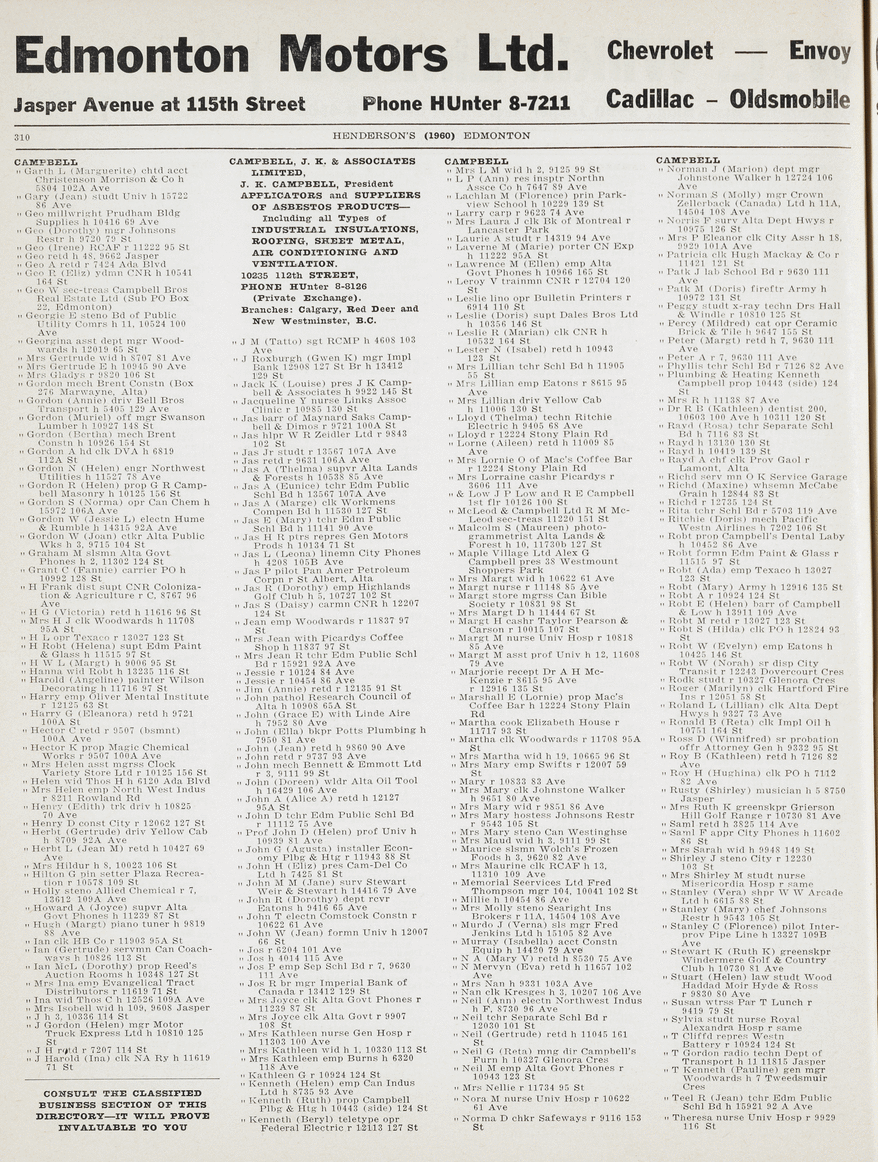 Edmonton Motors Ltd.
Chevrolet — Envoy
Jasper Avenue at 115th Street Phone HUnter 8-7211
Cadillac - Oldsmobile
310 HENDERSON'S (1960) EDMONTON
CAMPBELL
" Garth L (Marguerite) chtd acct
Christenson Morrison & Co h
5804 102A Ave
" Gary (Jean) studt Univ h 15722
86 Ave
" Geo millwright Prudham Bldg
Supplies h 10416 69 Ave
" Geo (Dorothy) mgr Johnsons
Restr h 9720 79 St
" Geo (Irene) RCAF r 11222 95 St
" Geo retd h 48, 9662 Jasper
" Geo A retd r 7424 Ada Blvd
" Geo R (Eliz) ydmn CNR h 10541
164 St
" Geo W sec-treas Campbell Bros
Real Estate Ltd (Sub PO Box
22, Edmonton)
" Georgie E steno Bd of Public
Utility Comrs h 11, 10524 100
Ave
" Georgina asst dept mgr Wood-
wards h 12019 65 St
" Mrs Gertrude wid h 8707 81 Ave
" Mrs Gertrude E h 10945 90 Ave
" Mrs Gladys r 9820 106 St
" Gordon mech Brent Constn (Box
276 Marwayne, Alta)
" Gordon (Annie) driv Bell Bros
Transport h 5405 129 Ave
" Gordon (Muriel) off mgr Swanson
Lumber h 10927 148 St
" Gordon (Bertha) mech Brent
Constn h 10926 154 St
" Gordon A hd clk DVA h 6819
112A St
" Gordon N (Helen) engr Northwest
Utilities h 11527 78 Ave
" Gordon R (Helen) prop G R Camp-
bell Masonry h 10125 156 St
" Gordon S (Norma) opr Can Chem h
15972 106A Ave
" Gordon W (Jessie L) electn Hume
& Rumble h 14315 92A Ave
" Gordon W (Joan) ctkr Alta Public
Wks h 3, 9715 104 St
" Graham M slsmn Alta Govt
Phones h 2, 11302 124 St
" Grant C (Fannie) carrier PO h
10992 128 St
" H Frank dist supt CNR Coloniza-
tion & Agriculture r C, 8767 96
Ave
" H G (Victoria) retd h 11616 96 St
" Mrs H J clk Woodwards h 11708
95A St
" H L opr Texaco r 13027 123 St
" H Robt (Helena) supt Edm Paint
& Glass h 11515 97 St
" H W L (Margt) h 9006 95 St
" Hanna wid Robt h 13235 116 St
" Harold (Angeline) painter Wilson
Decorating h 11716 97 St
" Harry emp Oliver Mental Institute
r 12125 63 St
" Harry G (Eleanora) retd h 9721
100A St
" Hector C retd r 9507 (bsmnt)
100A Ave
" Hector K prop Magic Chemical
Works r 9507 100A Ave
" Mrs Helen asst mgrss Clock
Variety Store Ltd r 10125 156 St
" Helen wid Thos H h 6120 Ada Blvd
" Mrs Helen emp North West Indus
r 8211 Rowland Rd
" Henry (Edith) trk driv h 10825
70 Ave
" Henry D const City r 12062 127 St
" Herbt (Gertrude) driv Yellow Cab
h 8709 92A Ave
" Herbt L (Jean M) retd h 10427 69
Ave
" Mrs Hildur h 8, 10023 106 St
" Hilton G pin setter Plaza Recrea-
tion r 10578 109 St
" Holly steno Allied Chemical r 7,
13612 109A Ave
" Howard A (Joyce) supvr Alta
Govt Phones h 11239 87 St
" Hugh (Margt) piano tuner h 9819
88 Ave
" Ian clk HB Co r 11903 95A St
" Ian (Gertrude) servmn Can Coach-
ways h 10826 113 St
" Ian McL (Dorothy) prop Reed's
Auction Rooms h 10348 127 St
" Mrs Ina emp Evangelical Tract
Distributors r 11619 71 St
" Ina wid Thos C h 12526 109A Ave
" Mrs Isobell wid h 109, 9608 Jasper
" J h 3, 10336 114 St
" J Gordon (Helen) mgr Motor
Truck Express Ltd h 10810 125
St
" J H retd r 7207 114 St
" J Harold (Ina) clk NA Ry h 11619
71 St
CONSULT THE CLASSIFIED
BUSINESS SECTION OF THIS
DIRECTORY—IT WILL PROVE
INVALUABLE TO YOU
CAMPBELL, J. K. & ASSOCIATES
LIMITED,
J. K. CAMPBELL, President
APPLICATORS and SUPPLIERS
OF ASBESTOS PRODUCTS—
Including all Types of
INDUSTRIAL INSULATIONS,
ROOFING, SHEET METAL,
AIR CONDITIONING AND
VENTILATION.
10235 112th STREET,
PHONE HUnter 8-8126
(Private Exchange).
Branches: Calgary, Red Deer and
New Westminster, B.C.
" J M (Tatto) sgt RCMP h 4608 103
Ave
" J Roxburgh (Gwen K) mgr Impl
Bank 12908 127 St Br h 13412
129 St
" Jack K (Louise) pres J K Camp-
bell & Associates h 9922 145 St
" Jacqueline Y nurse Links Assoc
Clinic r 10985 130 St
" Jas barr of Maynard Saks Camp-
bell & Dimos r 9721 100A St
" Jas hlpr W R Zeidler Ltd r 9843
102 St
" Jas Jr studt r 13567 107A Ave
" Jas retd r 9631 106A Ave
" Jas A (Thelma) supvr Alta Lands
& Forests h 10538 85 Ave
" Jas A (Eunice) tchr Edm Public
Schl Bd h 13567 107A Ave
" Jas A (Marge) clk Workmens
Compen Bd h 11530 127 St
" Jas E (Mary) tchr Edm Public
Schl Bd h 11141 90 Ave
" Jas H R ptrs repres Gen Motors
Prods h 10134 71 St
" Jas L (Leona) linemn City Phones
h 4208 105B Ave
" Jas P pilot Pan Amer Petroleum
Corpn r St Albert, Alta
" Jas R (Dorothy) emp Highlands
Golf Club h 5, 10727 102 St
" Jas S (Daisy) carmn CNR h 12207
124 St
" Jean emp Woodwards r 11837 97
St
" Mrs Jean with Picardys Coffee
Shop h 11837 97 St
" Mrs Jean R tchr Edm Public Schl
Bd r 15921 92A Ave
" Jessie r 10124 84 Ave
" Jessie r 10454 86 Ave
" Jim (Annie) retd r 12135 91 St
" John pathol Research Council of
Alta h 10908 65A St
" John (Grace E) with Linde Aire
h 7952 80 Ave
" John (Ella) bkpr Potts Plumbing h
7950 81 Ave
" John (Jean) retd h 9860 90 Ave
" John retd r 9737 93 Ave
" John mech Bennett & Emmott Ltd
r 3, 9111 99 St
" John (Doreen) wldr Alta Oil Tool
h 16429 106 Ave
" John A (Alice A) retd h 12127
95A St
" John D tchr Edm Public Schl Bd
r 11112 75 Ave
" Prof John D (Helen) prof Univ h
10939 81 Ave
" John G (Agusta) installer Econ-
omy Plbg & Htg r 11943 88 St
" John H (Eliz) pres Cam-Del Co
Ltd h 7425 81 St
" John M M (Jane) surv Stewart
Weir & Stewart h 14416 79 Ave
" John R (Dorothy) dept rcvr
Eatons h 9416 65 Ave
" John T electn Comstock Constn r
10622 61 Ave
" John W (Jean) formn Univ h 12007
66 St
" Jos r 6204 101 Ave
" Jos h 4014 115 Ave
" Jos P emp Sep Schl Bd r 7, 9630
111 Ave
" Jos R br mgr Imperial Bank of
Canada r 13412 129 St
" Mrs Joyce clk Alta Govt Phones r
11239 87 St
" Mrs Joyce clk Alta Govt r 9907
108 St
" Mrs Kathleen nurse Gen Hosp r
11303 100 Ave
" Mrs Kathleen wid h 1, 10330 113 St
" Mrs Kathleen emp Burns h 6320
118 Ave
" Kathleen G r 10924 124 St
" Kenneth (Helen) emp Can Indus
Ltd h 8735 93 Ave
" Kenneth (Ruth) prop Campbell
Plbg & Htg h 10443 (side) 124 St
" Kenneth (Beryl) teletype opr
Federal Electric r 12113 127 St
CAMPBELL
" Mrs L M wid h 2, 9125 99 St
" L P (Ann) res insptr Northn
Assce Co h 7647 89 Ave
" Lachlan M (Florence) prin Park-
view School h 10229 139 St
" Larry carp r 9623 74 Ave
" Mrs Laura J clk Bk of Montreal r
Lancaster Park
" Laurie A studt r 14319 94 Ave
" Laverne M (Marie) porter CN Exp
h 11222 95A St
" Lawrence M (Ellen) emp Alta
Govt Phones h 10966 165 St
" Leroy V trainmn CNR r 12704 120
St
" Leslie lino opr Bulletin Printers r
6914 110 St
" Leslie (Doris) supt Dales Bros Ltd
h 10356 146 St
" Leslie R (Marian) clk CNR h
10532 164 St
" Lester N (Isabel) retd h 10943
123 St
" Mrs Lillian tchr Schl Bd h 11905
55 St
" Mrs Lillian emp Eatons r 8615 95
Ave
" Mrs Lillian driv Yellow Cab
h 11006 130 St
" Lloyd (Thelma) techn Ritchie
Electric h 9405 68 Ave
" Lloyd r 12224 Stony Plain Rd
" Lorne (Aileen) retd h 11009 85
Ave
" Mrs Lornie O of Mac's Coffee Bar
r 12224 Stony Plain Rd
" Mrs Lorraine cashr Picardys r
3606 111 Ave
" & Low J P Low and R E Campbell
1st flr 10126 100 St
" McLeod & Campbell Ltd R M Mc-
Leod sec-treas 11220 151 St
" Malcolm S (Maureen) photo-
grammetrist Alta Lands &
Forest h 10, 11730b 127 St
" Maple Village Ltd Alex G
Campbell pres 38 Westmount
Shoppers Park
" Mrs Margt wid h 10622 61 Ave
" Margt nurse r 11148 85 Ave
" Margt store mgrss Can Bible
Society r 10831 98 St
" Mrs Margt D h 11444 67 St
" Margt H cashr Taylor Pearson &
Carson r 10015 107 St
" Margt M nurse Univ Hosp r 10818
85 Ave
" Margt M asst prof Univ h 12, 11608
79 Ave
" Marjorie recept Dr A H Mc-
Kenzie r 8615 95 Ave
r 12916 135 St
" Marshall E (Lornie) prop Mac's
Coffee Bar h 12224 Stony Plain
Rd
" Martha cook Elizabeth House r
11717 93 St
" Martha clk Woodwards r 11708 95A
St
" Mrs Martha wid h 19, 10665 96 St
" Mrs Mary emp Swifts r 12007 59
St
" Mary r 10833 83 Ave
" Mrs Mary clk Johnstone Walker
h 9651 80 Ave
" Mrs Mary wid r 9851 86 Ave
" Mrs Mary hostess Johnsons Restr
r 9543 105 St
" Mrs Mary steno Can Westinghse
" Mrs Maud wid h 3, 9111 99 St
" Maurice slsmn Wolch's Frozen
Foods h 3, 9620 82 Ave
" Mrs Maurine clk RCAF h 13,
11310 109 Ave
" Memorial Seervices Ltd Fred
Thompson mgr 104, 10041 102 St
" Millie h 10454 86 Ave
" Mrs Molly steno Searight Ins
Brokers r 11A, 14504 108 Ave
" Murdo J (Verna) sls mgr Fred
Jenkins Ltd h 15105 82 Ave
" Murray (Isabella) acct Constn
Equip h 14420 79 Ave
" N A (Mary V) retd h 8530 75 Ave
" N Mervyn (Eva) retd h 11657 102
Ave
" Mrs Nan h 9331 103A Ave
" Nan clk Kresges h 3, 10207 106 Ave
" Neil (Ann) electn Northwest Indus
h F, 8730 96 Ave
" Neil tchr Separate Schl Bd r
12030 101 St
" Neil (Gertrude) retd h 11045 161
St
" Neil G (Reta) mng dir Campbell's
Furn h 10327 Glenora Cres
" Neil M emp Alta Govt Phones r
10943 123 St
" Mrs Nellie r 11734 95 St
" Nora M nurse Univ Hosp r 10622
61 Ave
" Norma D chkr Safeways r 9116 153
St
CAMPBELL
" Norman J (Marion) dept mgr
Johnstone Walker h 12724 106
Ave
" Norman S (Molly) mgr Crown
Zellerback (Canada) Ltd h 11A,
14504 108 Ave
" Norris F surv Alta Dept Hwys r
10975 126 St
" Mrs P Eleanor clk City Assr h 18,
9929 101A Ave
" Patricia clk Hugh Mackay & Co r
11421 121 St
" Patk J lab School Bd r 9630 111
Ave
" Patk M (Doris) fireftr Army h
10972 131 St
" Peggy studt x-ray techn Drs Hall
& Windle r 10810 125 St
" Percy (Mildred) cat opr Ceramic
Brick & Tile h 9647 155 St
" Peter (Margt) retd h 7, 9630 111
Ave
" Peter A r 7, 9630 111 Ave
" Phyllis tchr Schl Bd r 7126 82 Ave
" Plumbing & Heating Kenneth
Campbell prop 10443 (side) 124
St
" Mrs R h 11138 87 Ave
" Dr R B (Kathleen) dentist 200,
10603 100 Ave h 10311 120 St
" Rayd (Rosa) tchr Separate Schl
Bd h 7116 83 St
" Rayd h 13130 130 St
" Rayd h 10419 139 St
" Rayd A chf clk Prov Gaol r
Lamont, Alta
" Richd serv mn O K Service Garage
" Richd (Maxine) whsemn McCabe
Grain h 12844 83 St
" Richd r 12735 124 St
" Rita tchr Schl Bd r 5703 119 Ave
" Ritchie (Doris) mech Pacific
Westn Airlines h 7202 106 St
" Robt prop Campbell's Dental Laby
h 10452 86 Ave
" Robt formn Edm Paint & Glass r
11515 97 St
" Robt (Ada) emp Texaco h 13027
123 St
" Robt (Mary) Army h 12916 135 St
" Robt A r 10924 124 St
" Robt E (Helen) barr of Campbell
& Low h 13911 109 Ave
" Robt M retd r 13027 123 St
" Robt S (Hilda) clk PO h 12824 93
St
" Robt W (Evelyn) emp Eatons h
10425 146 St
" Robt W (Norah) sr disp City
Transit r 12243 Dovercourt Cres
" Rodk studt r 10327 Glenora Cres
" Roger (Marilyn) clk Hartford Fire
Ins r 12051 58 St
" Roland L (Lillian) clk Alta Dept
Hwys h 9327 73 Ave
" Ronald B (Reta) clk Impl Oil h
10751 164 St
" Ross D (Winifred) sr probation
offr Attorney Gen h 9332 95 St
" Roy B (Kathleen) retd h 7126 82
Ave
" Roy H (Hughina) clk PO h 7112
82 Ave
" Rusty (Shirley) musician h 5 8750
Jasper
" Mrs Ruth K greenskpr Grierson
Hill Golf Range r 10730 81 Ave
" Saml retd h 3825 114 Ave
" Saml F appr City Phones h 11602
86 St
" Mrs Sarah wid h 9948 149 St
" Shirley J steno City r 12230
103 St
" Mrs Shirley M studt nurse
Misericordia Hosp r same
" Stanley (Vera) shpr W W Arcade
Ltd h 6615 88 St
" Stanley (Mary) chef Johnsons
Restr h 9543 105 St
" Stanley C (Florence) pilot Inter-
prov Pipe Line h 13327 109B
Ave
" Stewart K (Ruth K) greenskpr
Windermere Golf & Country
Club h 10730 81 Ave
" Stuart (Helen) law studt Wood
Haddad Moir Hyde & Ross
r 9830 80 Ave
" Susan wtrss Par T Lunch r
9419 79 St
" Sylvia studt nurse Royal
Alexandra Hosp r same
" T Cliffd repres Westn
Battery r 10924 124 St
" T Gordon radio techn Dept of
Transport h 11 11815 Jasper
" T Kenneth (Pauline) gen mgr
Woodwards h 7 Tweedsmuir
Cres
" Teel R (Jean) tchr Edm Public
Schl Bd h 15921 92 A Ave
" Theresa nurse Univ Hosp r 9929
116 St